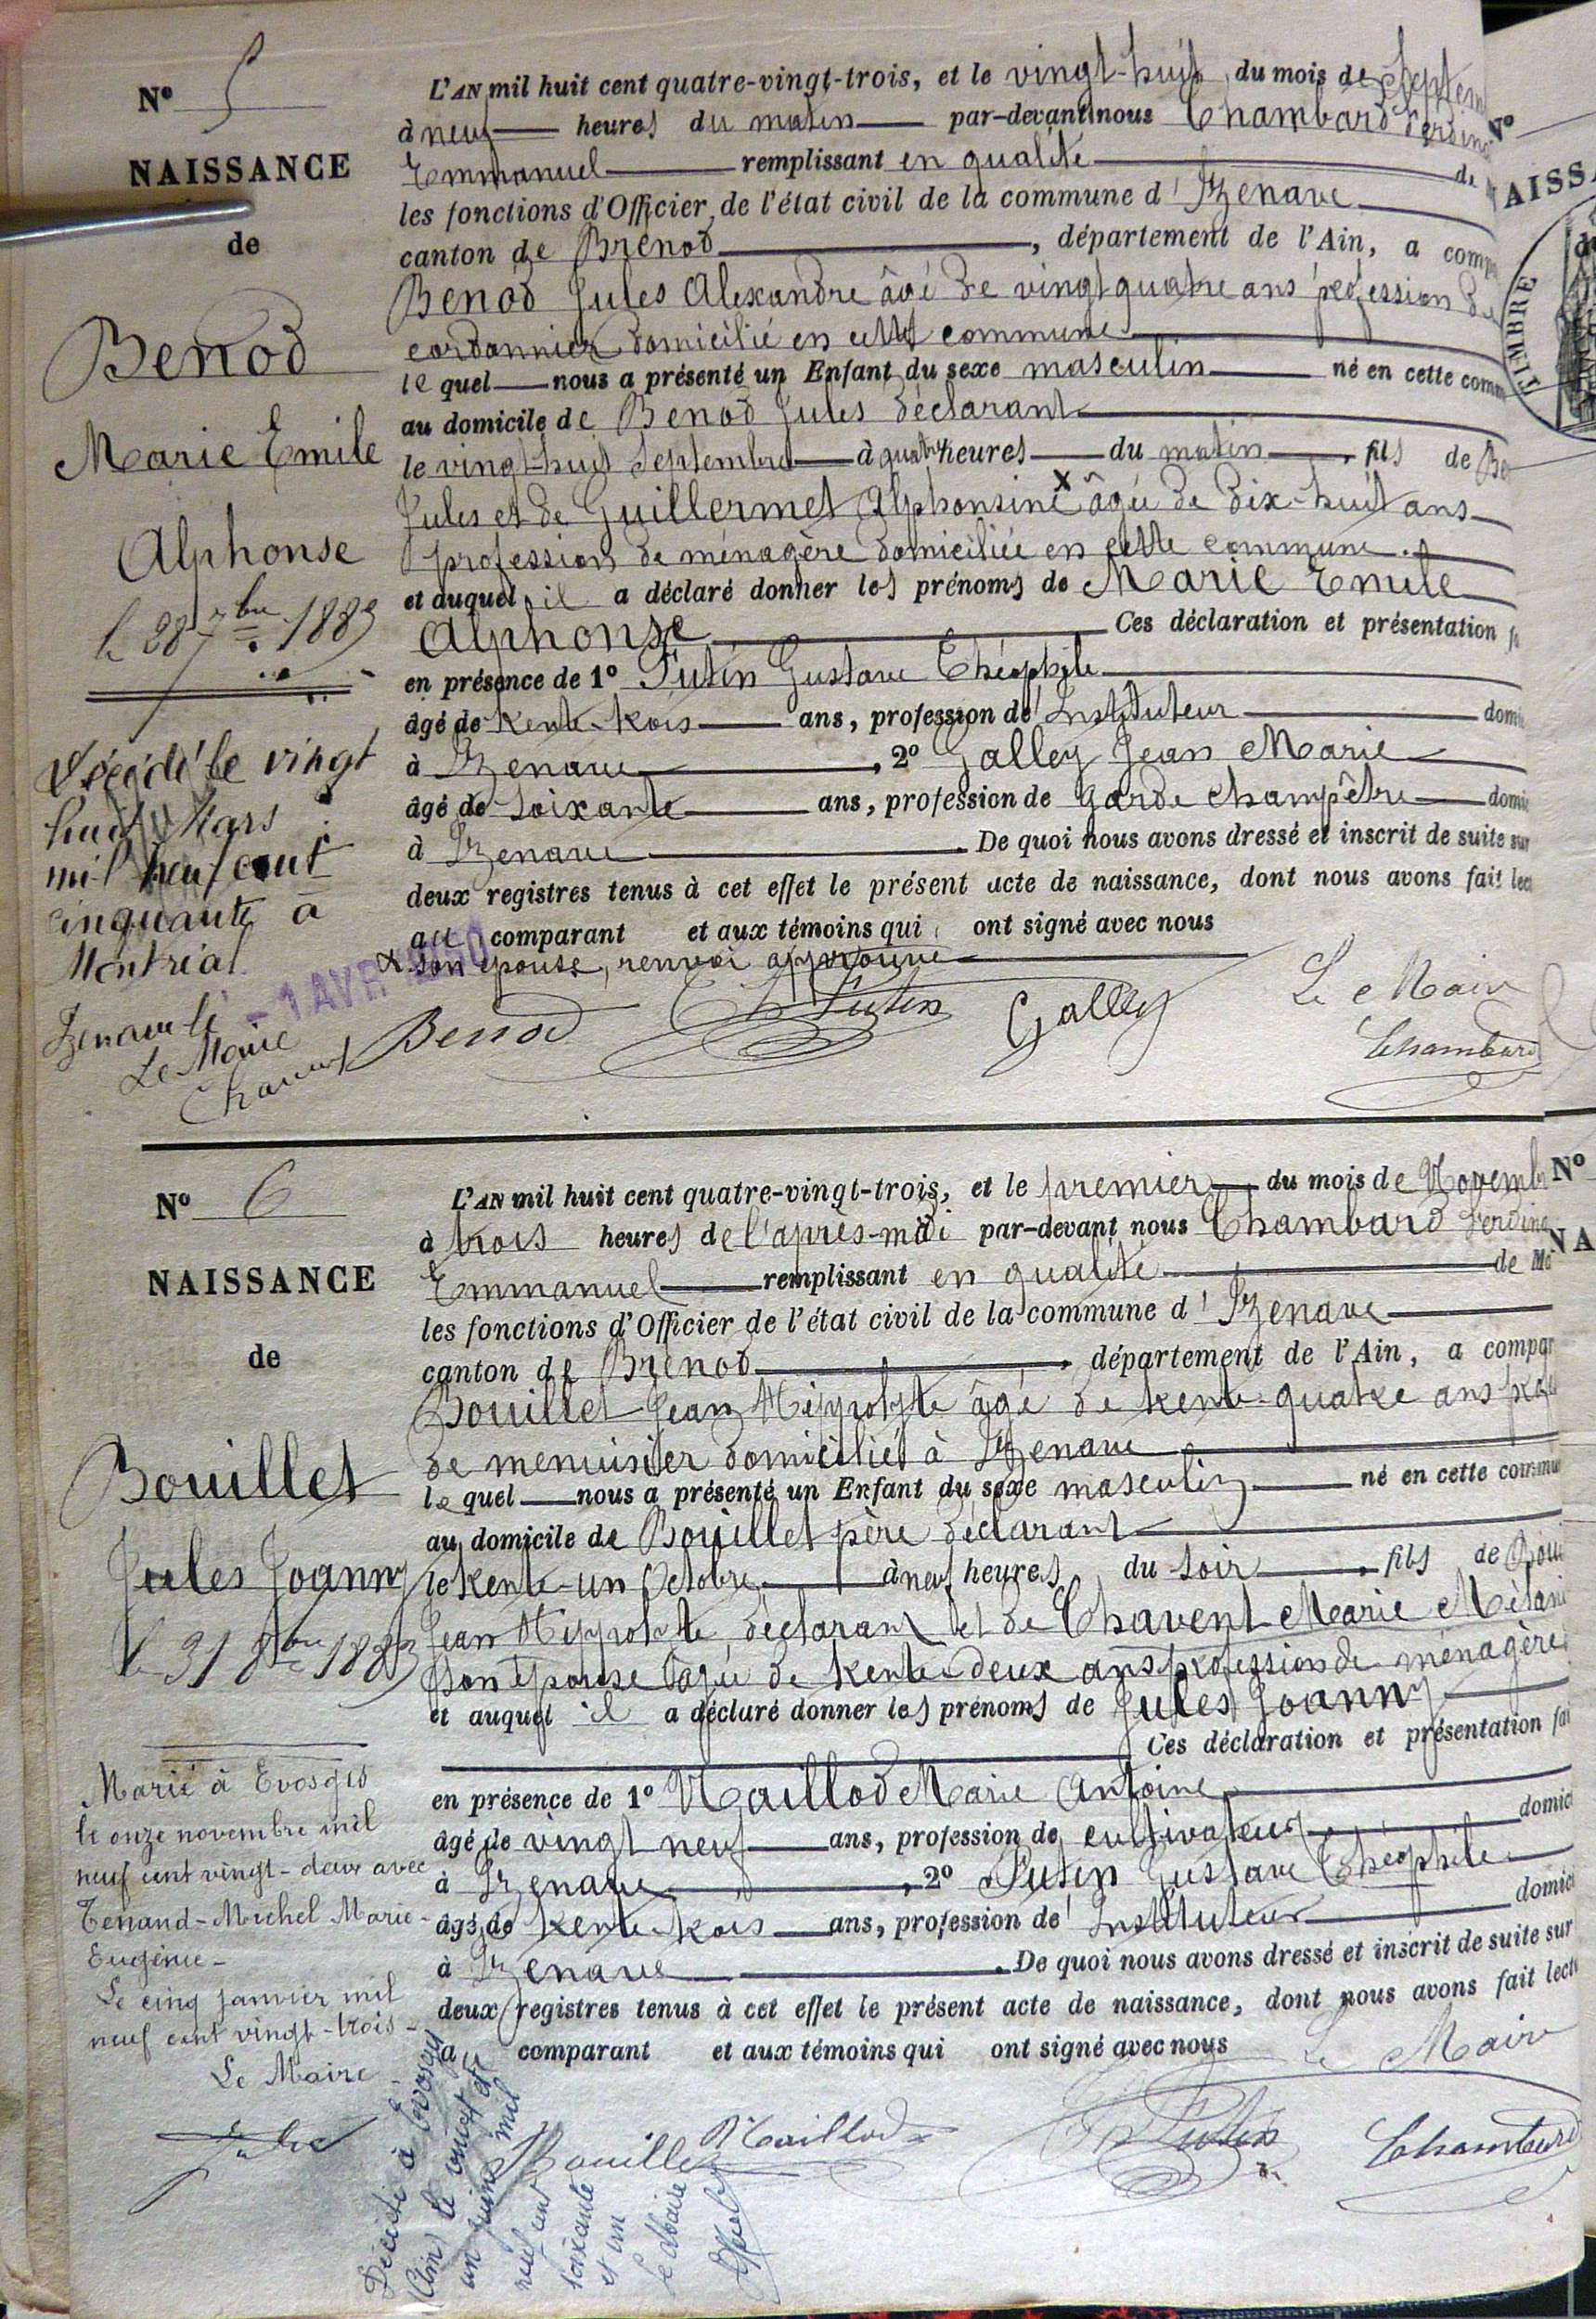 N° 5
NAISSANCE
de
Benod
Marie Emile
Alphonse
le 28 7bre 1883
Décédé le vingt
huit Mars
mil neuf cent
cinquante à
Montréal
Izenave le
- 1 AVR 1950
Le Maire
L'AN mil huit cent quatre-vingt-trois, et le vingt-huit du mois de Septem
à neuf heures du matin par-devant nous Chambard Ferdin
Emmanuel remplissant en qualité de
les fonctions d'Officier de l'état civil de la commune d'Izenave
canton de Brénod, département de l'Ain, a comp
Benod Jules Alexandre âgé de vingt quatre ans profession de
cordonnier domicilié en cette commune
lequel nous a présenté un Enfant du sexe masculin né en cette comm
au domicile de Benod Jules déclarant
le vingt-huit Septembre à quatre heures du matin, fils de Be
Jules et de Guillermet Alphonsine x âgée de dix-huit ans
profession de ménagère domiciliée en cette commune.
et auquel il a déclaré donner les prénoms de Marie Emile
Alphonse Ces déclaration et présentation f
en présence de 1° Putin Gustave Théophile
âgé de trente-trois ans, profession d'Instituteur domi
à Izenave, 2° Galley Jean Marie
âgé de soixante ans, profession de garde champêtre domi
à Izenave. De quoi nous avons dressé et inscrit de suite sur
deux registres tenus à cet effet le présent acte de naissance, dont nous avons fait lec
au comparant et aux témoins qui ont signé avec nous
x son épouse, renvoi approuvé
Benod Th Putin Galley Le Maire
Chambard
N° 6
NAISSANCE
de
Bouillet
Jules Joanny
le 31 8bre 1883
Marié à Evosges
le onze novembre mil
neuf cent vingt-deux avec
Tenand-Michel Marie-
Eugénie-
Le cinq janvier mil
neuf cent vingt-trois-
Le Maire
L'AN mil huit cent quatre-vingt-trois, et le premier du mois de Novembr
à trois heures de l'après-midi par-devant nous Chambard Ferdin
Emmanuel remplissant en qualité de Ma
les fonctions d'Officier de l'état civil de la commune d'Izenave
canton de Brénod, département de l'Ain, a compar
Bouillet Jean Hippolyte âgé de trente-quatre ans prof
de menuisier domicilié à Izenave
lequel nous a présenté un Enfant du sexe masculin né en cette commu
au domicile de Bouillet père déclarant
le trente-un Octobre à neuf heures du soir, fils de Boui
Jean Hippolyte déclarant et de Chavent Marie Mélani
son épouse âgée de trente-deux ans profession de ménagère
et auquel il a déclaré donner les prénoms de Jules Joanny
Ces déclaration et présentation fai
en présence de 1° Maillod Marie Antoine
âgé de vingt neuf ans, profession de cultivateur domici
à Izenave, 2° Putin Gustave Théophile
âgé de trente-trois ans, profession d'Instituteur domici
à Izenave. De quoi nous avons dressé et inscrit de suite sur
deux registres tenus à cet effet le présent acte de naissance, dont nous avons fait lect
au comparant et aux témoins qui ont signé avec nous
Le Maire
Bouillet Maillod Th Putin Chambard
Décédé à Evosges
(Ain) le vingt et
un juin mil
neuf cent
soixante
et un
le Maire
N°
AISSA
TIMBRE
N°
NA